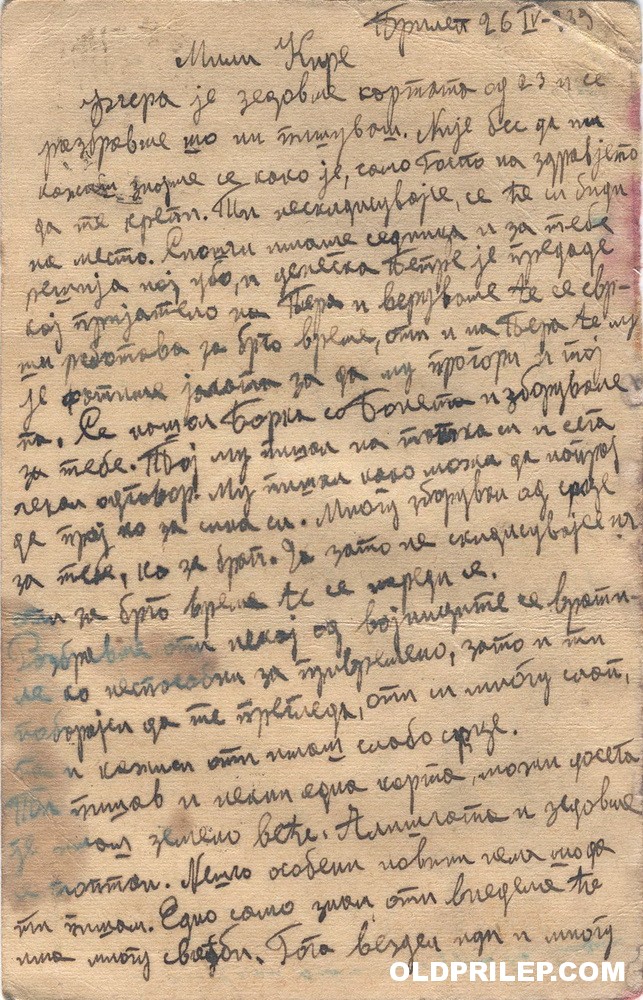 Прилеп 26 IV - 939
Мили Кире
Учера је зедовме картата од 23 и се
разбравме шо ни пишуваш. Није бес да ти
кажам знајме се како је, само Госпо на здравјето
да те крепи. Ти нескидисувајсе, се ће си биди
на место. Сношчи имаше седница и за тебе
решија пој убо, и денеска Петре је предаде
кај пријатело на Пера и верувame ће се свр-
ши работава за брго време, оти и на Пера ће му
је
за да му прогори и тој
па. Се нашол Борка со Бонета и зборувале
за тебе. Тој му пишал на татка си и сега
чекал одговор. Му пишал како можа да напрај
да прај ко за сина си. Многу зборувал од срце
за тебе, ко за брат. Да зато не скидисувајсе
за брго време ће се нареди се.
Разбравме оти некој од војниците се врати-
ле ко неспособни за привремено, зато и ти
да те прегледа, оти си многу слап,
и кажи си оти имаш слабо срце.
Ти пишав и некни една карта, можи досега
је имаш земено веће. Алишчата и зедовме
Нешчо особени новини нема шо да
ти пишам. Едно само знам оти внедела ће
има многу свадби. Гога везден иди и многу
OLDPRILEP.COM